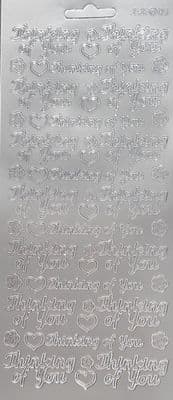 Thinking Thinking
of You of You
Thinking of You
Thinking Thinking
of You of You
Thinking of You
Thinking Thinking
of You of You
Thinking of You
Thinking Thinking
of You of You
Thinking of You
Thinking Thinking
of You of You
Thinking of You
Thinking Thinking
of You of You
Thinking of You
Thinking Thinking
of You of You